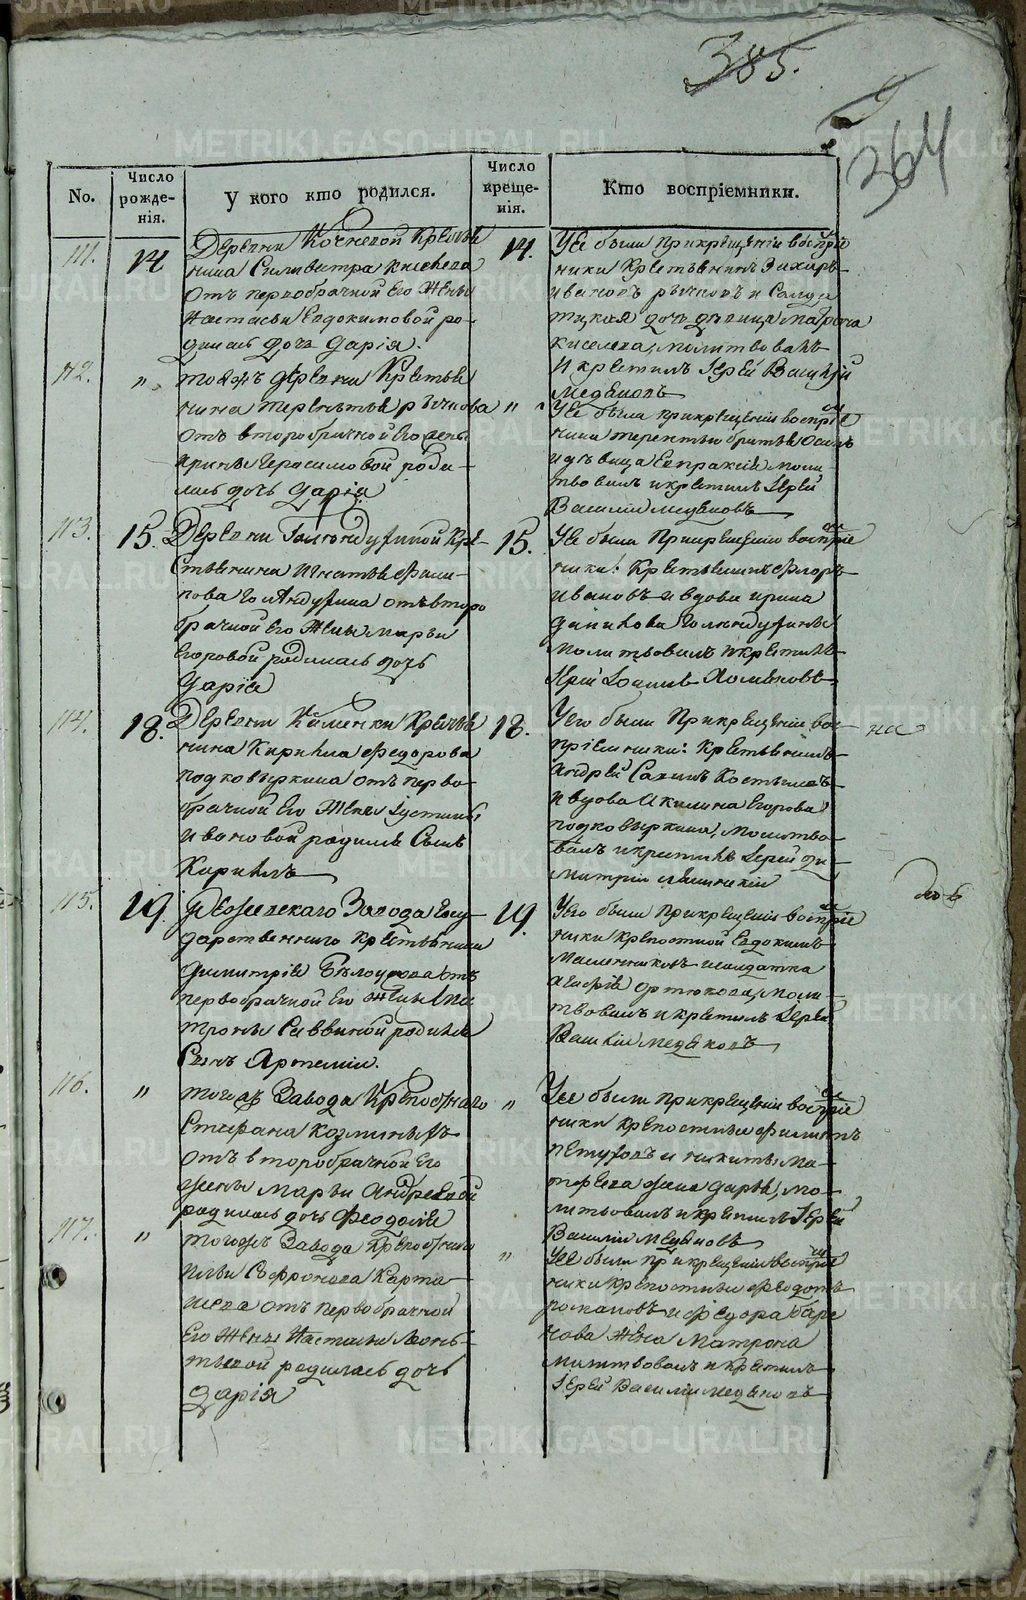 385.
264
No.
Число рожде-нія.
У кого кто родился.
Число креще-нія.
Кто воспріемники.
111.
14
Деревни Кочневой Крестья
нина Силивестра Киселева
отъ первобрачной Его Жены
Настасьи Евдокимовой ро-
дилась дочь Дарія.
14.
У ее были при крещеніи воспріе
ники Крестьянинъ Захаръ
Ивановъ и Салда
тская дочь девица Матрона
Киселева, молитвовалъ
и крестилъ Іерей Василій
Медяковъ
112.
"
той жъ деревни Крестья
нина Терентья
отъ второбрачной Его жены
Ирины Герасимовой роди-
лась дочь Дарія
"
У ее были при крещеніи воспріе
ники Терентью братья
и девица Евпраксія моли
твовалъ и крестилъ Іерей
Василій Медяковъ
113.
15.
Деревни Голындухиной Кре-
стьянина Игнатья Фили-
пова Голындухина отъ второ
брачной Его Жены Марьи
Егоровой родилась дочь
Дарія
15.
У ее были При крещеніи воспріе
ники: Крестьянинъ Флоръ
Ивановъ и вдова Ирина
Данилова Голындухины
молитвовалъ и крестилъ
Іерей Іоаннъ Хомяковъ
114.
18.
Деревни Каменки Крестья
нина Кирилла Федорова
Подковыркина отъ перво-
брачной Его Жены Іустиньи
Ивановой родился Сынъ
Кириллъ
18.
У его были При крещеніи вос-
пріемники: Крестьянинъ
Андрей Савинъ Костылевъ
и вдова Акилина Егорова
Подковыркина, Молитво-
валъ и крестилъ Іерей Ди-
митрій
на
115.
19.
Режевскаго Завода Госу-
дарственнаго Крестьянина
Димитрія Белоусова отъ
первобрачной Его Жены
Саввиной родился
Сынъ Артемій.
19.
У его были При крещеніи воспріе
ники крепостной Евдокимъ
Масленниковъ и салдатка
Агафія Ортюкова, моли-
твовалъ и крестилъ Іерей
Василій Медяковъ
116.
"
тогожъ Завода Крепостнаго
Стефана Козминыхъ
отъ второбрачной Его
жены Марьи Андреевой
родилась дочь Феодосія
"
У ее были при крещеніи воспріе
ники крепостные Филиппъ
Петуховъ и Никиты Ма-
твеева жена Дарья, мо-
литвовалъ и крестилъ Іерей
Василій Медяковъ
117.
"
тогожъ Завода Крепостнаго
Ильи Софронова Карта
шева отъ первобрачной
Его Жены Настасьи Леонь-
тьевой родилась дочь
Дарія
"
У ее были при крещеніи воспріе
ники крепостные Федотъ
Романовъ и Федора
жена Матрона
молитвовалъ и крестилъ
Іерей Василій Медяковъ